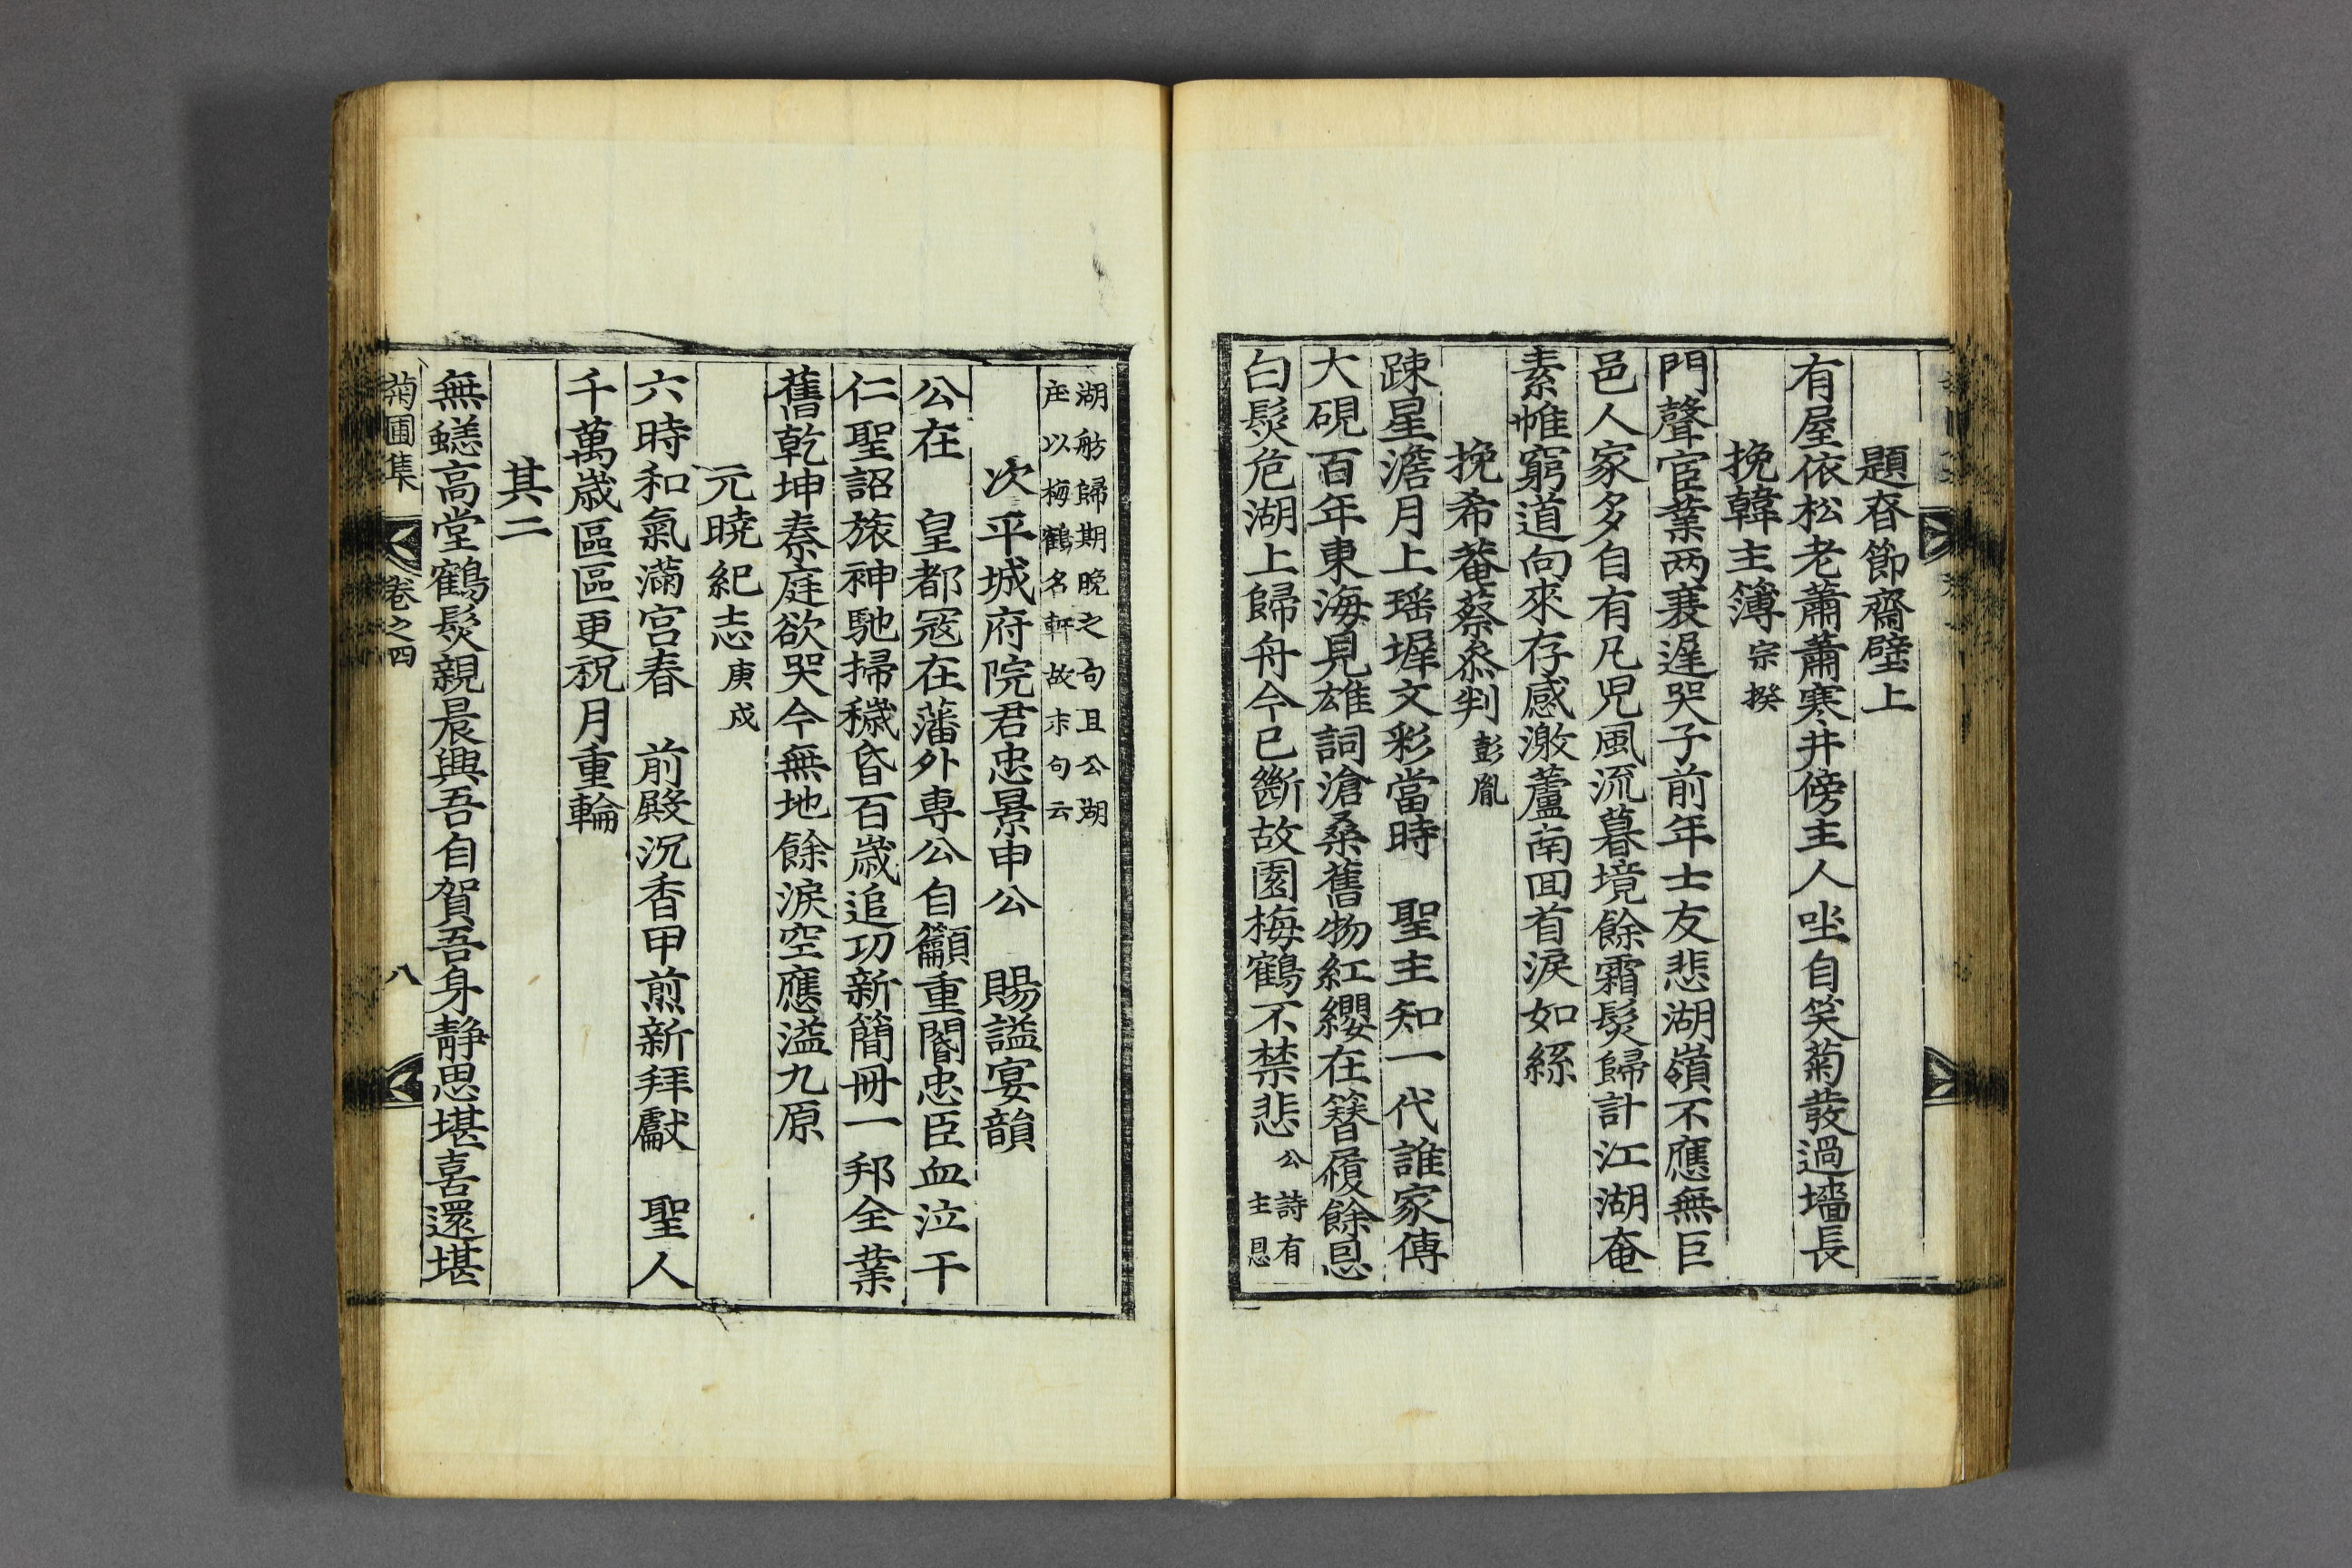 題春節齋壁上
有屋依松老蕭蕭寒井傍主人坐自笑菊發過墻長
挽韓主簿宗揆
門聲宦業兩衰遲哭子前年士友悲湖嶺不應無巨
邑人家多自有凡兒風流暮境餘霜鬂歸計江湖奄
素帷窮道向來存感激蘆南回首淚如絲
挽希菴蔡叅判彭胤
踈星澹月上瑶墀文彩當時 聖主知一代誰家傳
大硯百年東海見雄詞滄桑舊物紅纓在簪履餘恩
白鬂危湖上歸舟今已斷故園梅鶴不禁悲公詩有主恩
湖舫歸期晚之句且公湖
庄以梅鶴名軒故末句云
次平城府院君忠景申公 賜謚宴韻
公在 皇都冦在藩外專公自籲重閽忠臣血泣干
仁聖詔旅神馳掃穢昏百歲追功新簡冊一邦全業
舊乾坤秦庭欲哭今無地餘淚空應溢九原
元曉紀志庚戌
六時和氣滿宮春 前殿沉香甲煎新拜獻 聖人
千萬歲區區更祝月重輪
其二
無蟋高堂鶴鬂親晨興吾自賀吾身靜思堪喜還堪
菊圃集 卷之四 八